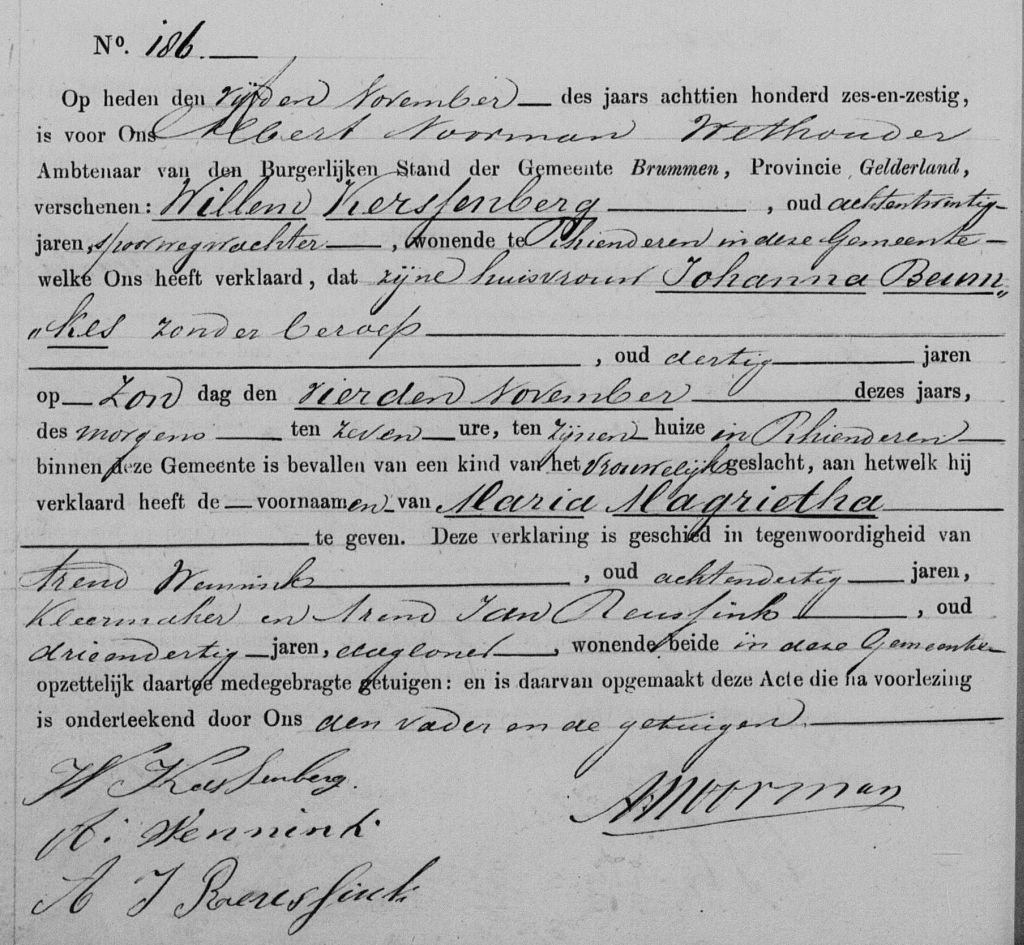 No. 186.
Op heden den vijfden November des jaars achttien honderd zes-en-zestig,
is voor Ons Albert Noorman Wethouder
Ambtenaar van den Burgerlijken Stand der Gemeente Brummen, Provincie Gelderland,
verschenen: Willem Kerssenberg, oud achtentwintig
jaren, spoorwegwachter, wonende te Rhienderen in deze Gemeente
welke Ons heeft verklaard, dat zijne huisvrouw Johanna Beum„
„kes zonder beroep
, oud dertig jaren
op Zondag den vierden November dezes jaars,
des morgens ten zeven ure, ten zijnen huize in Rhienderen
binnen deze Gemeente is bevallen van een kind van het vrouwelijk geslacht, aan hetwelk hij
verklaard heeft de voornaamen van Maria Magrietha
te geven. Deze verklaring is geschied in tegenwoordigheid van
Arend Wennink, oud achtendertig jaren,
Kleermaker en Arend Jan Reussink, oud
drieendertig jaren, dagloner, wonende beide in deze Gemeente
opzettelijk daartoe medegebragte getuigen: en is daarvan opgemaakt deze Acte die na voorlezing
is onderteekend door Ons den vader en de getuigen.
W Kerssenberg.
A Noorman
A. Wennink.
A J Reussink